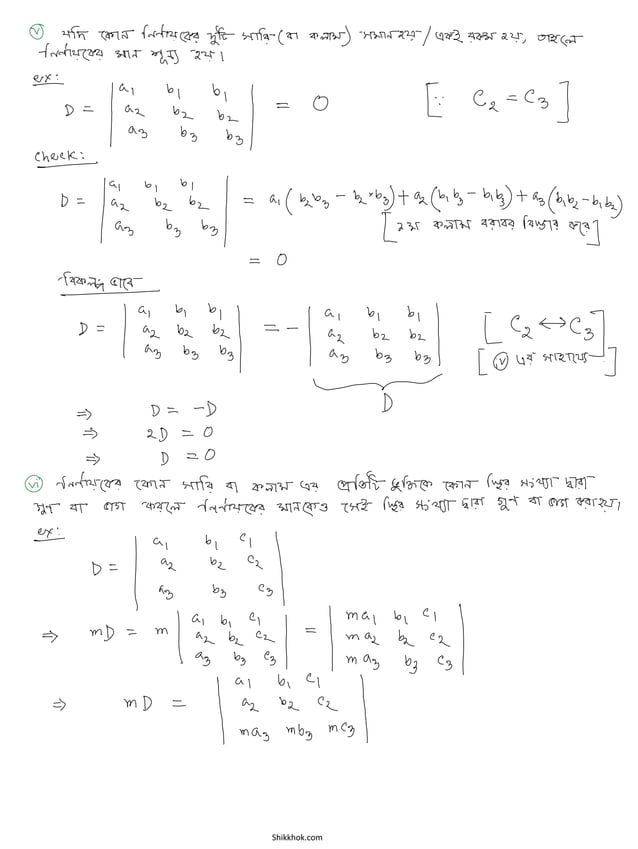 (v) যদি কোন নির্ণায়কের দুটি সারি (বা কলাম) সমান হয় / একই রকম হয়, তাহলে
নির্ণায়কের মান শূন্য হয়।
ex:
D = | a₁ b₁ b₁ |
| a₂ b₂ b₂ | = 0 [∵ C₂ = C₃]
| a₃ b₃ b₃ |
check:
D = | a₁ b₁ b₁ |
| a₂ b₂ b₂ | = a₁(b₂b₃ - b₂×b₃) + a₂(b₁b₃ - b₁b₃) + a₃(b₁b₂ - b₁b₂)
| a₃ b₃ b₃ | [১ম কলাম বরাবর বিস্তার করে]
= 0
বিকল্প ভাবে
D = | a₁ b₁ b₁ | = - | a₁ b₁ b₁ | [C₂ ↔ C₃]
| a₂ b₂ b₂ | | a₂ b₂ b₂ |
| a₃ b₃ b₃ | | a₃ b₃ b₃ | [(iv) এর সাহায্যে]
D
⇒ D = -D
⇒ 2D = 0
⇒ D = 0
(vi) নির্ণায়কের কোন সারি বা কলাম এর প্রতিটি ভুক্তিকে কোন স্থির সংখ্যা দ্বারা
গুণ বা ভাগ করলে নির্ণায়কের মানকেও সেই স্থির সংখ্যা দ্বারা গুণ বা ভাগ করা হয়।
ex:
D = | a₁ b₁ c₁ |
| a₂ b₂ c₂ |
| a₃ b₃ c₃ |
⇒ mD = m | a₁ b₁ c₁ | = | ma₁ b₁ c₁ |
| a₂ b₂ c₂ | | ma₂ b₂ c₂ |
| a₃ b₃ c₃ | | ma₃ b₃ c₃ |
⇒ mD = | a₁ b₁ c₁ |
| a₂ b₂ c₂ |
| ma₃ mb₃ mc₃ |
Shikkhok.com